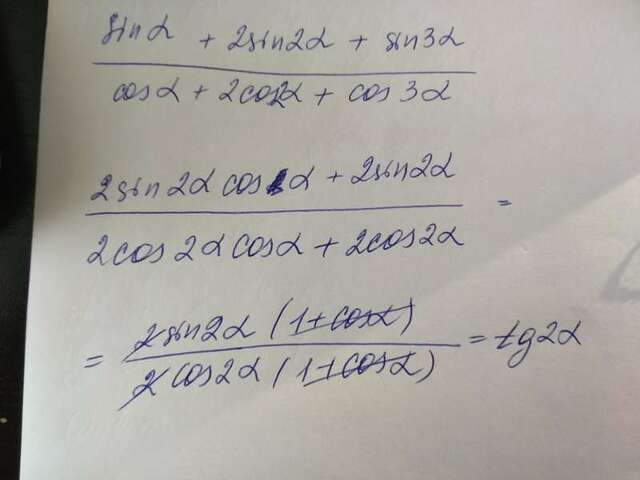 sinα + 2sin2α + sin3α
cosα + 2cos2α + cos3α
2sin2α cosα + 2sin2α
2cos2α cosα + 2cos2α =
= 2sin2α (1+cosα)
2cos2α (1+cosα) = tg2α